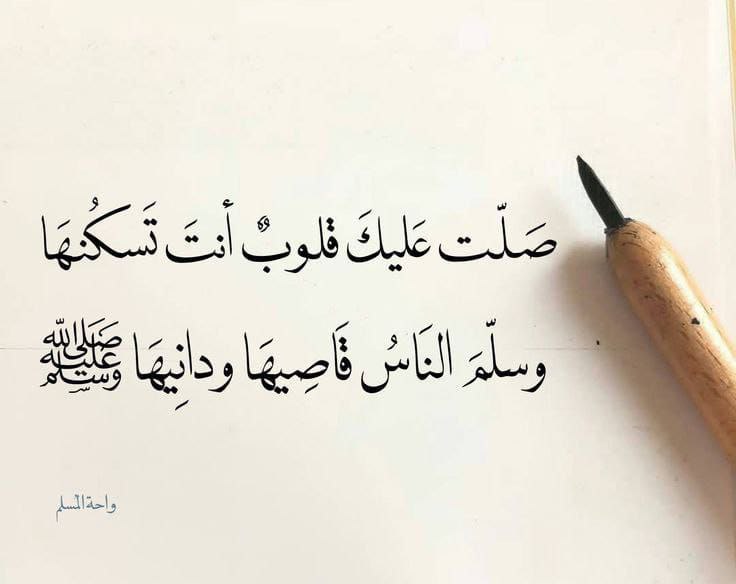 صَلّت عَليكَ قلوبٌ أنتَ تَسكُنهَا
وسلّمَ النَاسُ قَاصِيهَا ودانِيهَا ﷺ
واحة المسلم